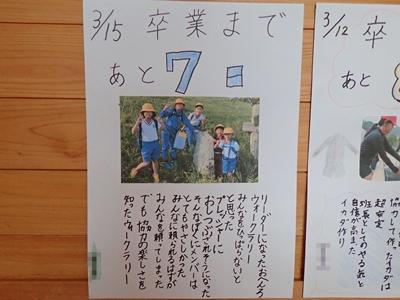 3/15 卒業まで
あと7日
リーダーになったおんろ
ウォークラリー
みんなをひっぱらないと
と思った
プレッシャーに
おしつぶされそうになった
そんなぼくにメンバーは
とてもやさしかった
みんなに頼られるはずが
みんなを頼ってしまった
でも協力の楽しさを
知ったウォークラリー
3/12 卒
あと
協力して作ったイカダは
超安定
自信が高まった
イカダ作り